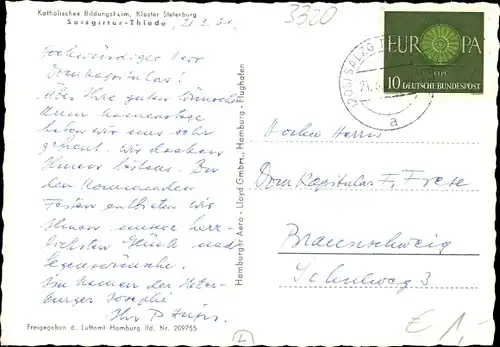 Katholisches Bildungsheim, Kloster Steterburg
Salzgitter-Thiede
3320
Hochwürdiger Herr
Domkapitular!
Über Ihre guten Wünsche
zum Namenstage
haben wir uns sehr
gefreut. Wir danken
Ihnen bestens. Zu
den kommenden
Festen entbieten wir
Ihnen unsere herz-
lichsten Glück und
Segenswünsche.
Im Namen der Steter-
burger Josephi
Ihr P.
Freigegeben d. Luftamt Hamburg lfd. Nr. 209755
Hamburger Aero-Lloyd GmbH., Hamburg-Flughafen
(20b) SALZG
a
EUROPA
CEPT
10 DEUTSCHE BUNDESPOST
Hohen Herrn
Domkapitular F. Frese
Braunschweig
Schulweg 3
L
€ 1,-